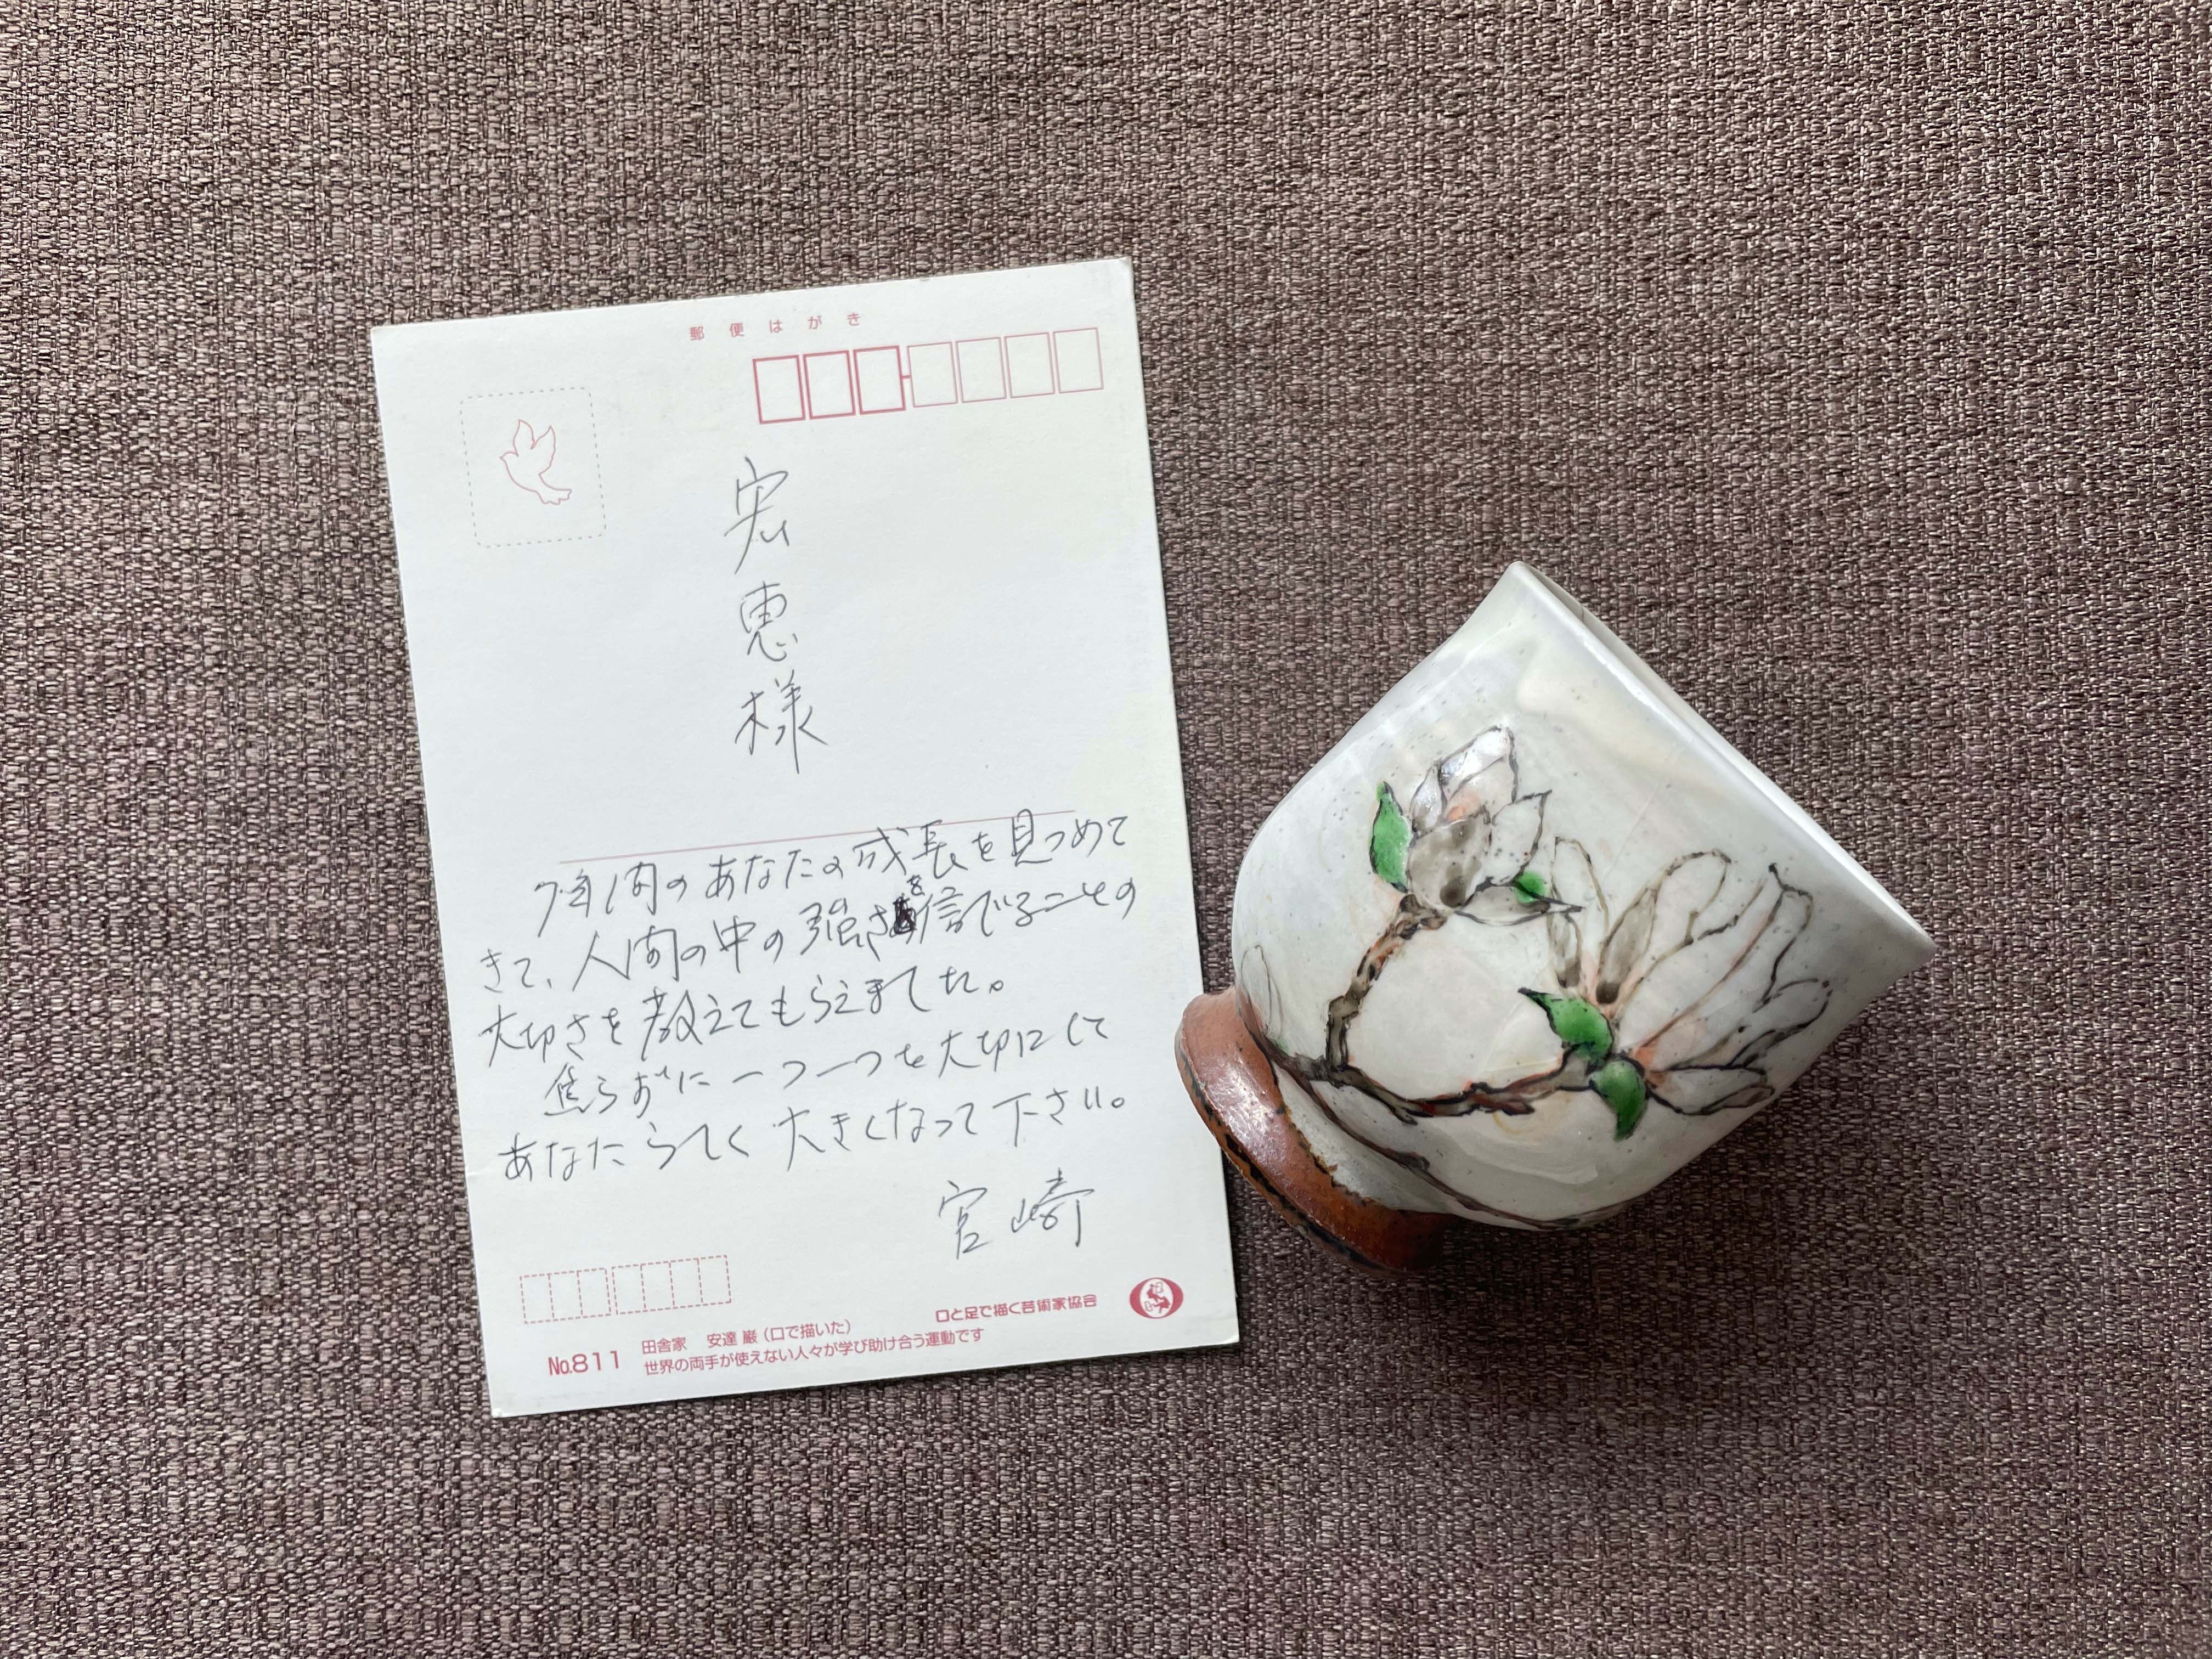 郵便はがき
宏恵様
7年間のあなたの成長を見つめて
きて、人間の中の強さを信じることの
大切さを教えてもらえました。
焦らずに一つ一つを大切にして
あなたらしく大きくなって下さい。
宮崎
口と足で描く芸術家協会
No.811
田舎家 安達 巌(口で描いた)
世界の両手が使えない人々が学び助け合う運動です